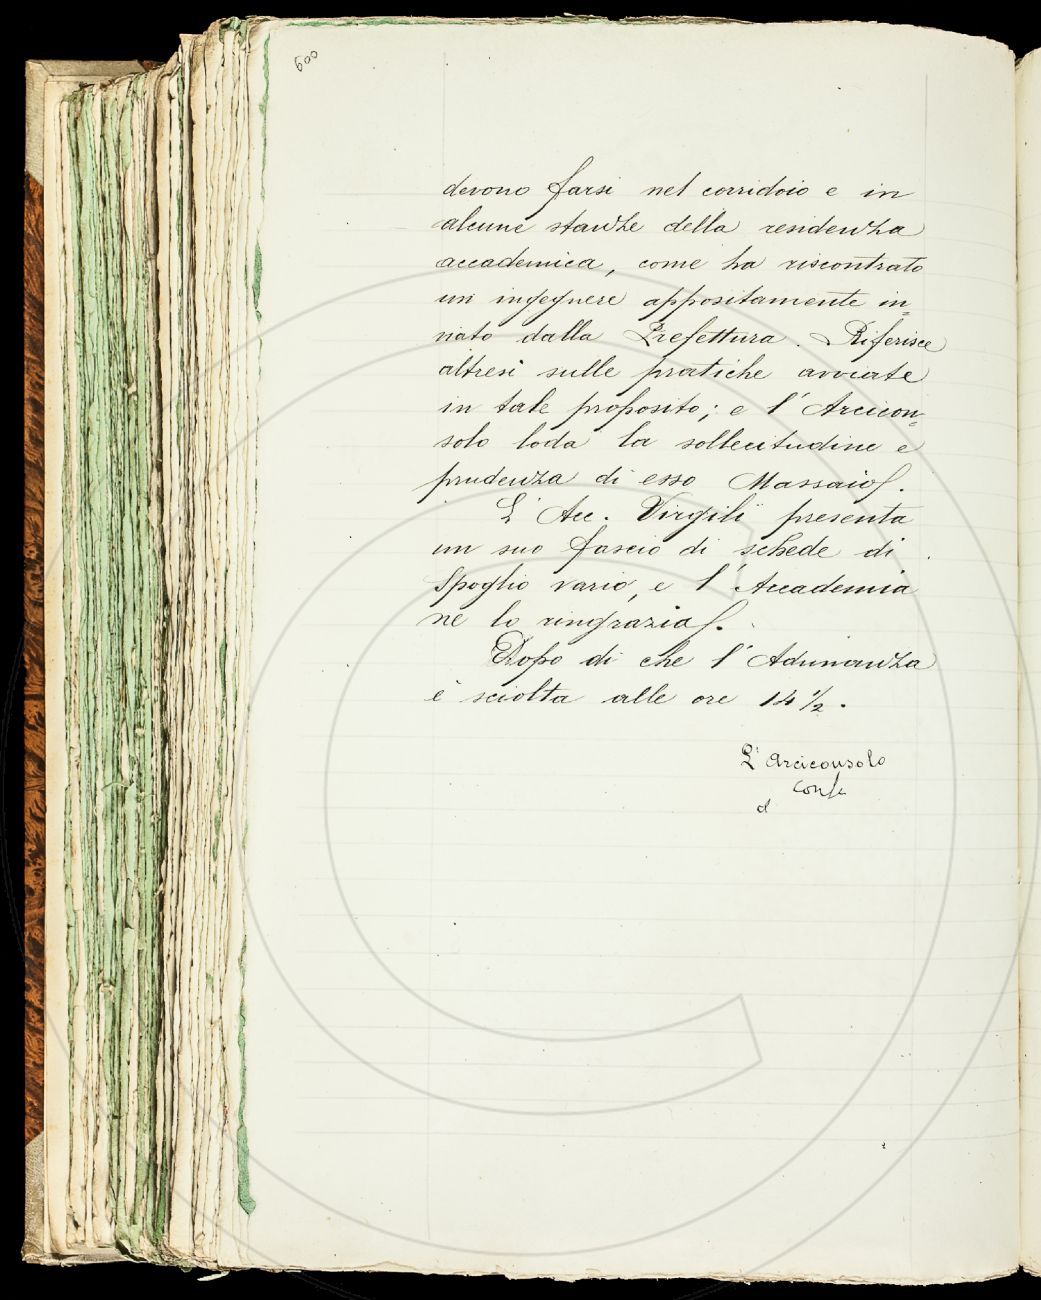 600
devono farsi nel corridoio e in
alcune stanze della residenza
accademica, come ha riscontrato
un ingegnere appositamente in=
viato dalla Prefettura. Riferisce
altresì sulle pratiche avviate
in tale proposito; e l'Arcicon=
solo loda la sollecitudine e
prudenza di esso Massaio.
L'Acc. Virgilii presenta
un suo fascio di schede di
Spoglio vario, e l'Accademia
ne lo ringrazia.
Dopo di che l'Adunanza
è sciolta alle ore 14 ½.
L'Arciconsolo